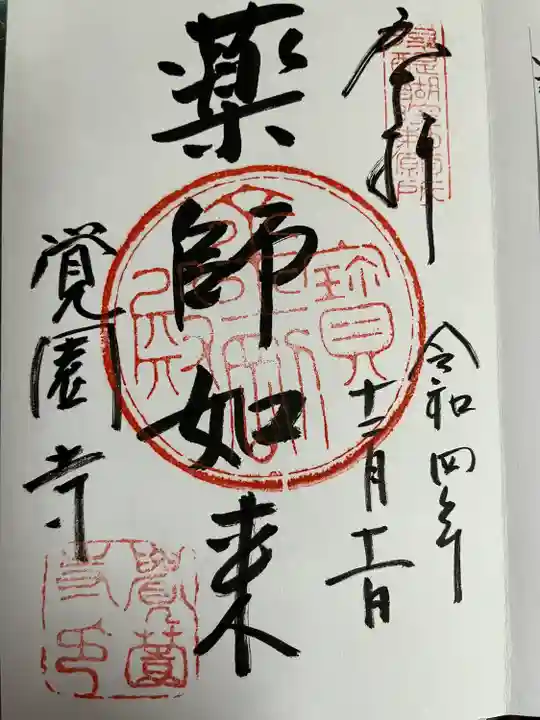 奉拝
令和四年
十二月十一日
薬師如来
覚園寺
寶
殿
覺園
寺印